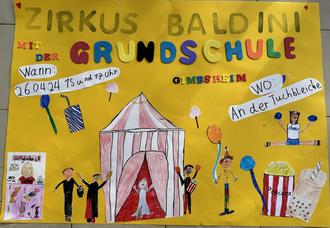 ZIRKUS BALDINI
MIT DER GRUNDSCHULE
GIMBSHEIM
Wann:
26.04.24 15 und 17 Uhr
WO?
An der Tuchbleiche
POPCORN